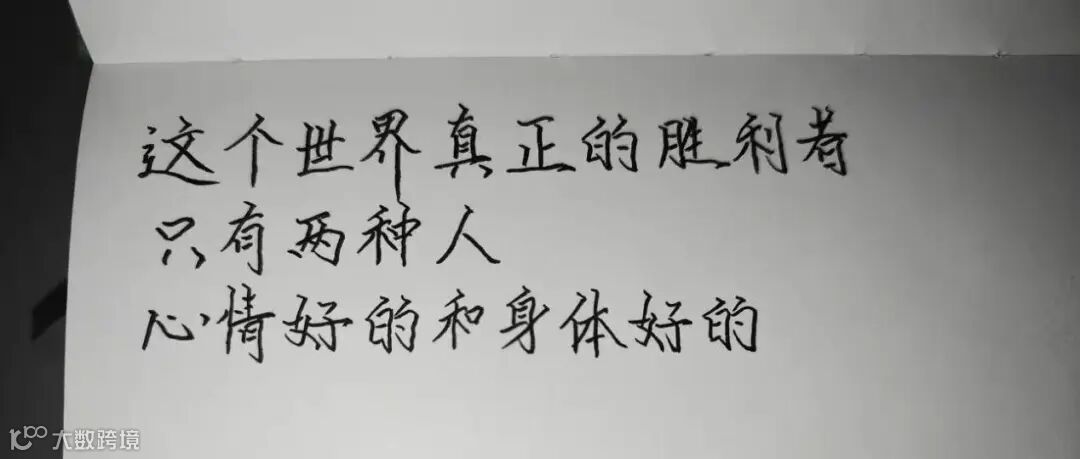 这个世界真正的胜利者
只有两种人
心情好的和身体好的
大数跨境